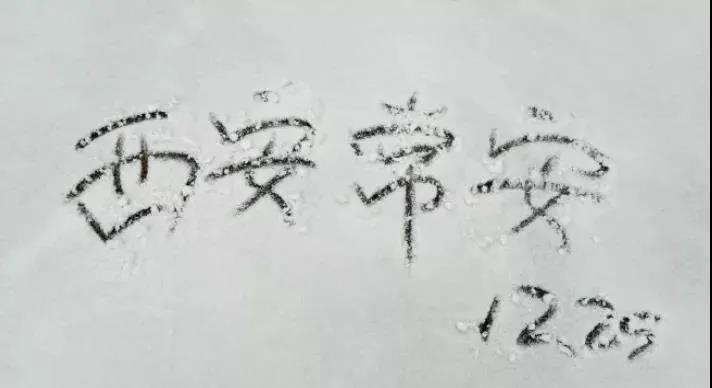 西安常安
12.25